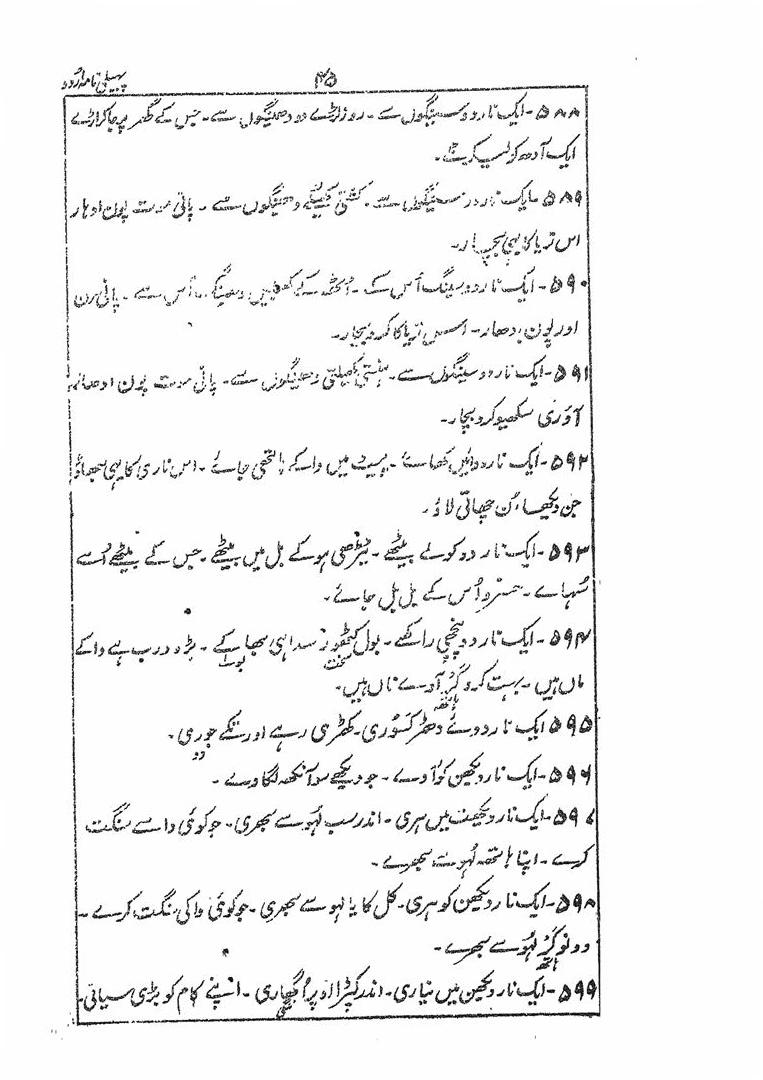 ۴۵ پہیلی نامہ اُردُو
۵۸۸-ایک نار دو سینگوں سے- روز لڑے دو دھینگوں سے- جس کے گھر پر جا کر اڑے
ایک آدھ کو لے کر ٹ-
۵۸۹-ایک نار دو سینگوں سے- کُشتی کھیلے دھینگوں سے- پانی پون ادہار
اس تریا کا یہی بچار-
۵۹۰-ایک نار دو سینگ اُس کے- دھینگ اُس سے- پانی
اور پون ادھار- اس تریا کا کرو بچار-
۵۹۱-ایک نار دو سینگوں سے- ہنستی کھیلتی دھینگوں سے- پانی پون ادھار
آؤ ری سکھیو کرو بچار-
۵۹۲-ایک نار دوائیں کھائے- پیٹ میں واکے ہاتھی جائے- اس ناری کا یہی سبھاؤ
جن دیکھا اُن چھاتی لاؤ-
۵۹۳-ایک نار دو کولے بیٹھے- ٹیڑھی ہو کے بل میں بیٹھے- جس کے بیٹھے اُسے
سُہائے- خسرو اُس کے بل بل جائے-
۵۹۴-ایک نار دو پنچھی راکھے- بول کٹھور سدا ہی بھاکے- بڑو درب ہے واکے
سخت بولے
ماں ہیں- بہت کرو کر آوے ناں ہیں-
ہاتھ
۵۹۵ ایک نار دوئے دھڑ کسوری- کھڑی رہے اور تکے جوری-
دو
۵۹۶-ایک نار دیکھن کو آوے- جو دیکھے سو آنکھ لگاوے-
۵۹۷-ایک نار دیکھت میں ہری- اندر سب لہُو سے بھری- جو کوئی وا سے سنگت
کرے- اپنا ہاتھ لہُو سے بھرے-
۵۹۸-ایک نار دیکھن کو ہری- کل کایا لہو سے بھری- جو کوئی وا کی سنگت کرے-
دو نو کر لہُو سے بھرے-
ہاتھ
۵۹۹-ایک نار دیکھن میں نیاری- اندر کپڑا اوپر اُگھاری- اپنے کام کو بڑی سیانی-